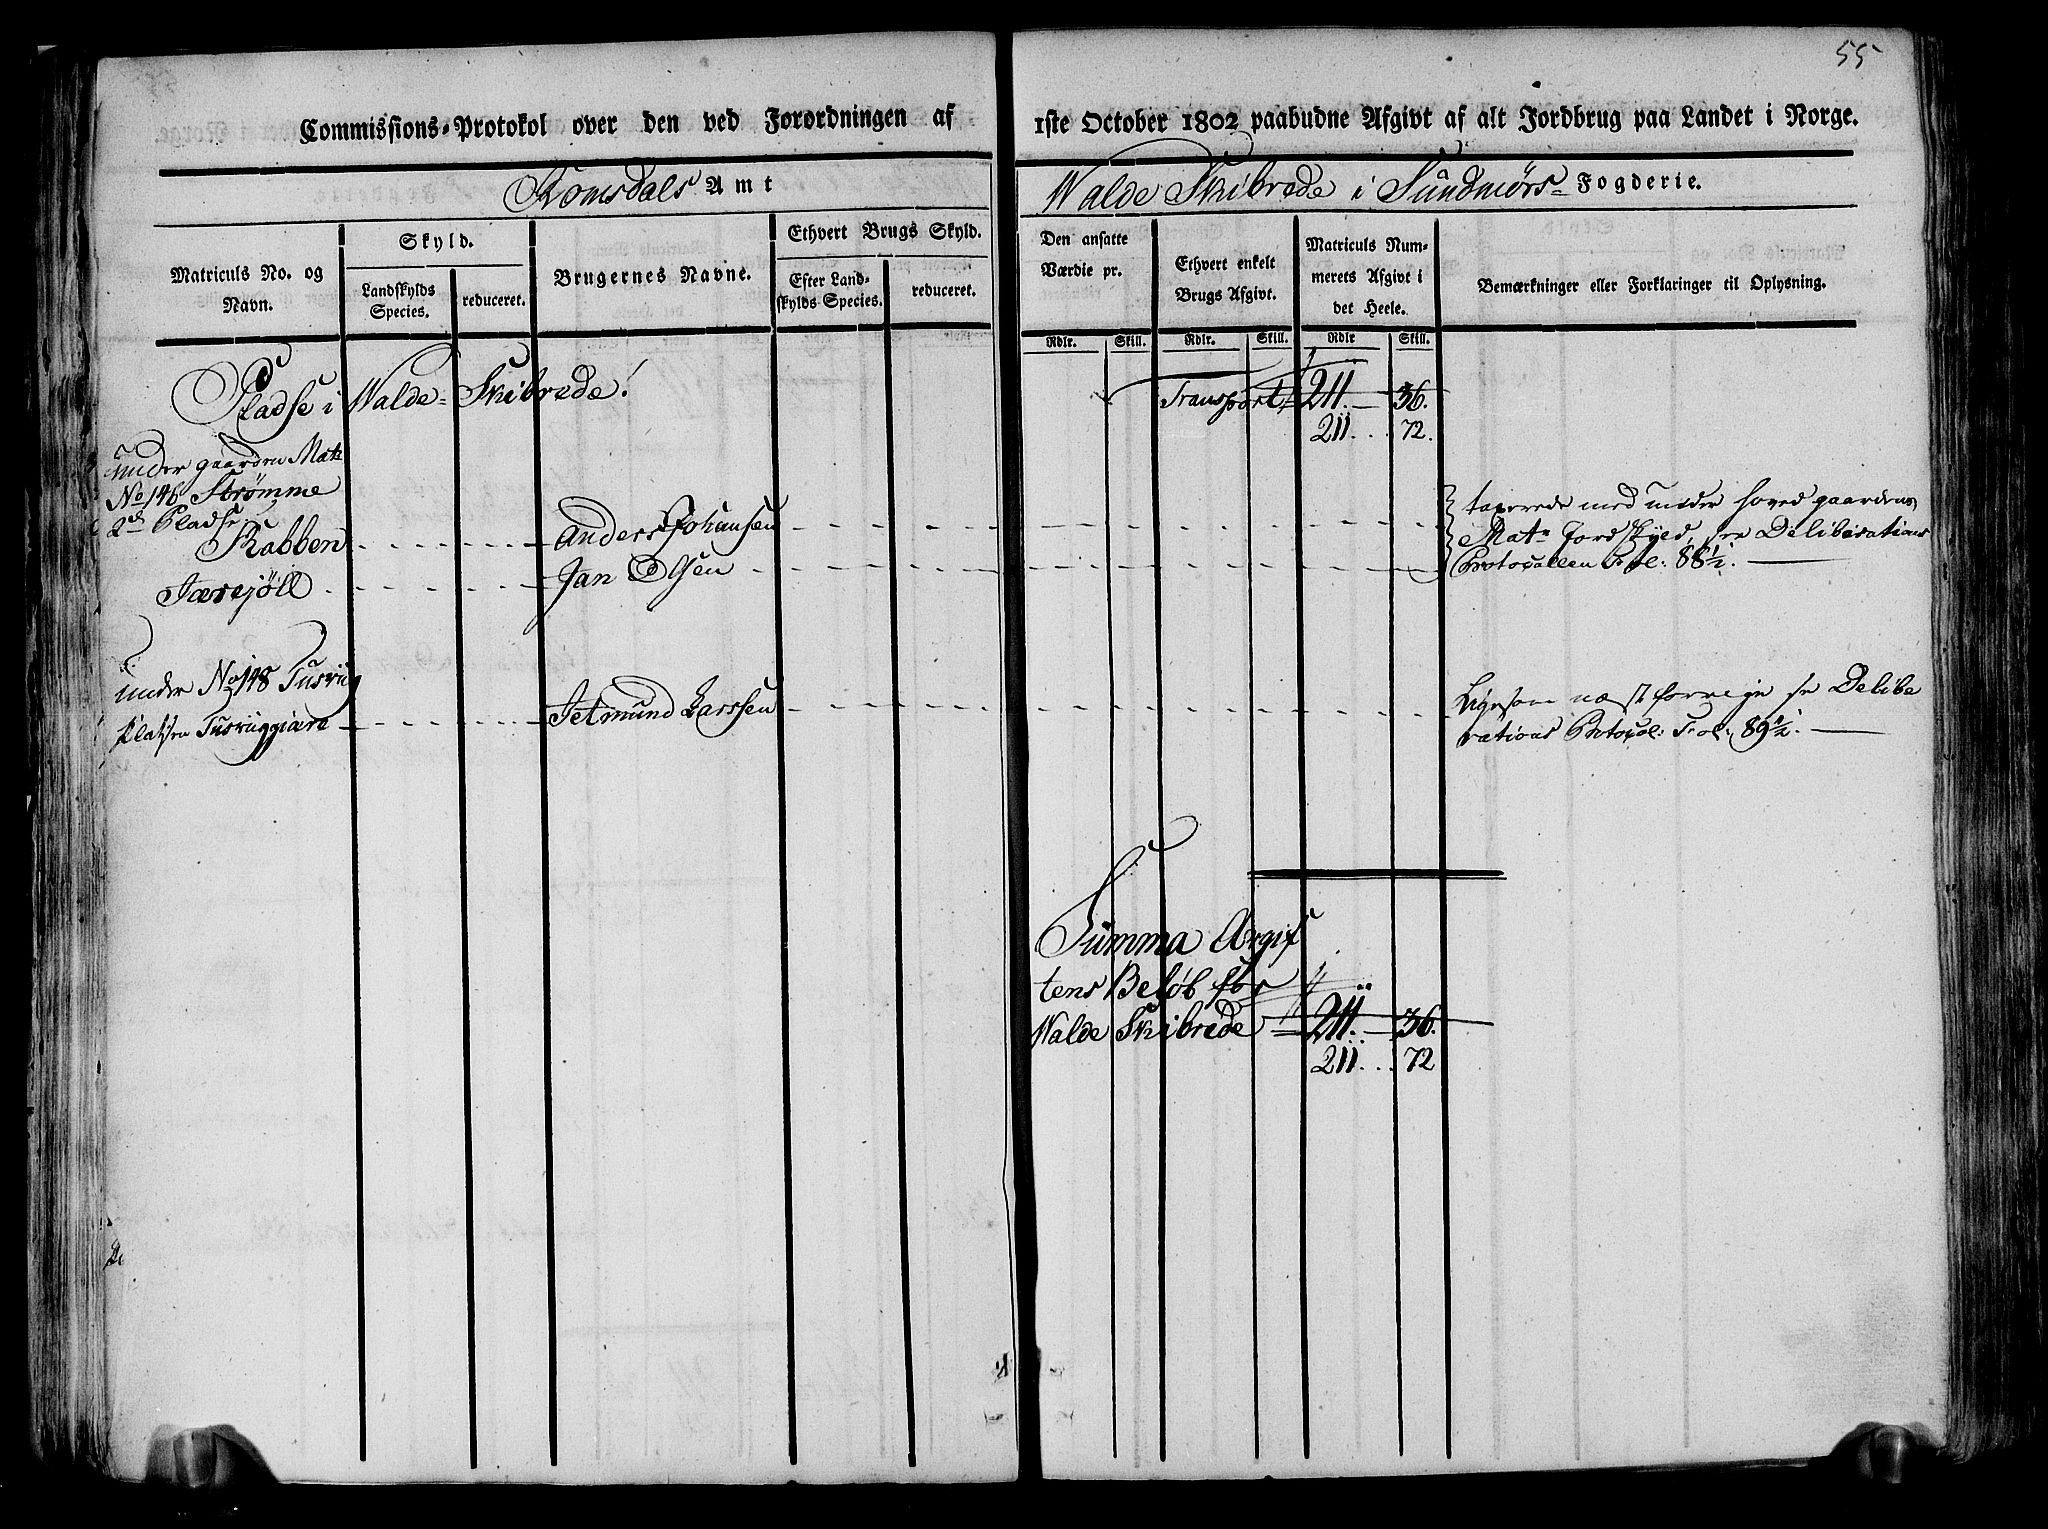 55
Commissions-Protokol over den ved Forordningen af 1ste October 1802 paabudne Afgivt af alt Jordbrug paa Landet i Norge.
Romsdals Amt
Walde Skibrede i Sundmørs Fogderie.
Matriculs No. og Navn.
Skyld.
Landskylds Species.
reduceret.
Brugernes Navne.
Ethvert Brugs Skyld.
Efter Landskylds Species.
reduceret.
Den ansatte Værdie pr.
Ethvert enkelt Brugs Afgivt.
Matriculs Nummerets Afgivt i det Heele.
Bemærkninger eller Forklaringer til Oplysning.
Rdlr. Skill. Rdlr. Skill. Rdlr Skill.
Pladse i Walde Skibrede!
Transport 211. 36.
211. 72.
under gaarden Mat:
No 146 Strømme
2de Pladse
Rabben Anders Johansen
Jan Olsen
taxerede med under hoved gaardens
Mat: Jordskyld, se Deliberations
Protocollen Fol: 88½.
under No 148 Tusvig
Pladsen Jetmund Larssen
Ligesom næst forrige se Delibe
rations Protocol: Fol: 89½.
Summa Avgif
tens Beløb for
Walde Skibrede 211. 36.
211. 72